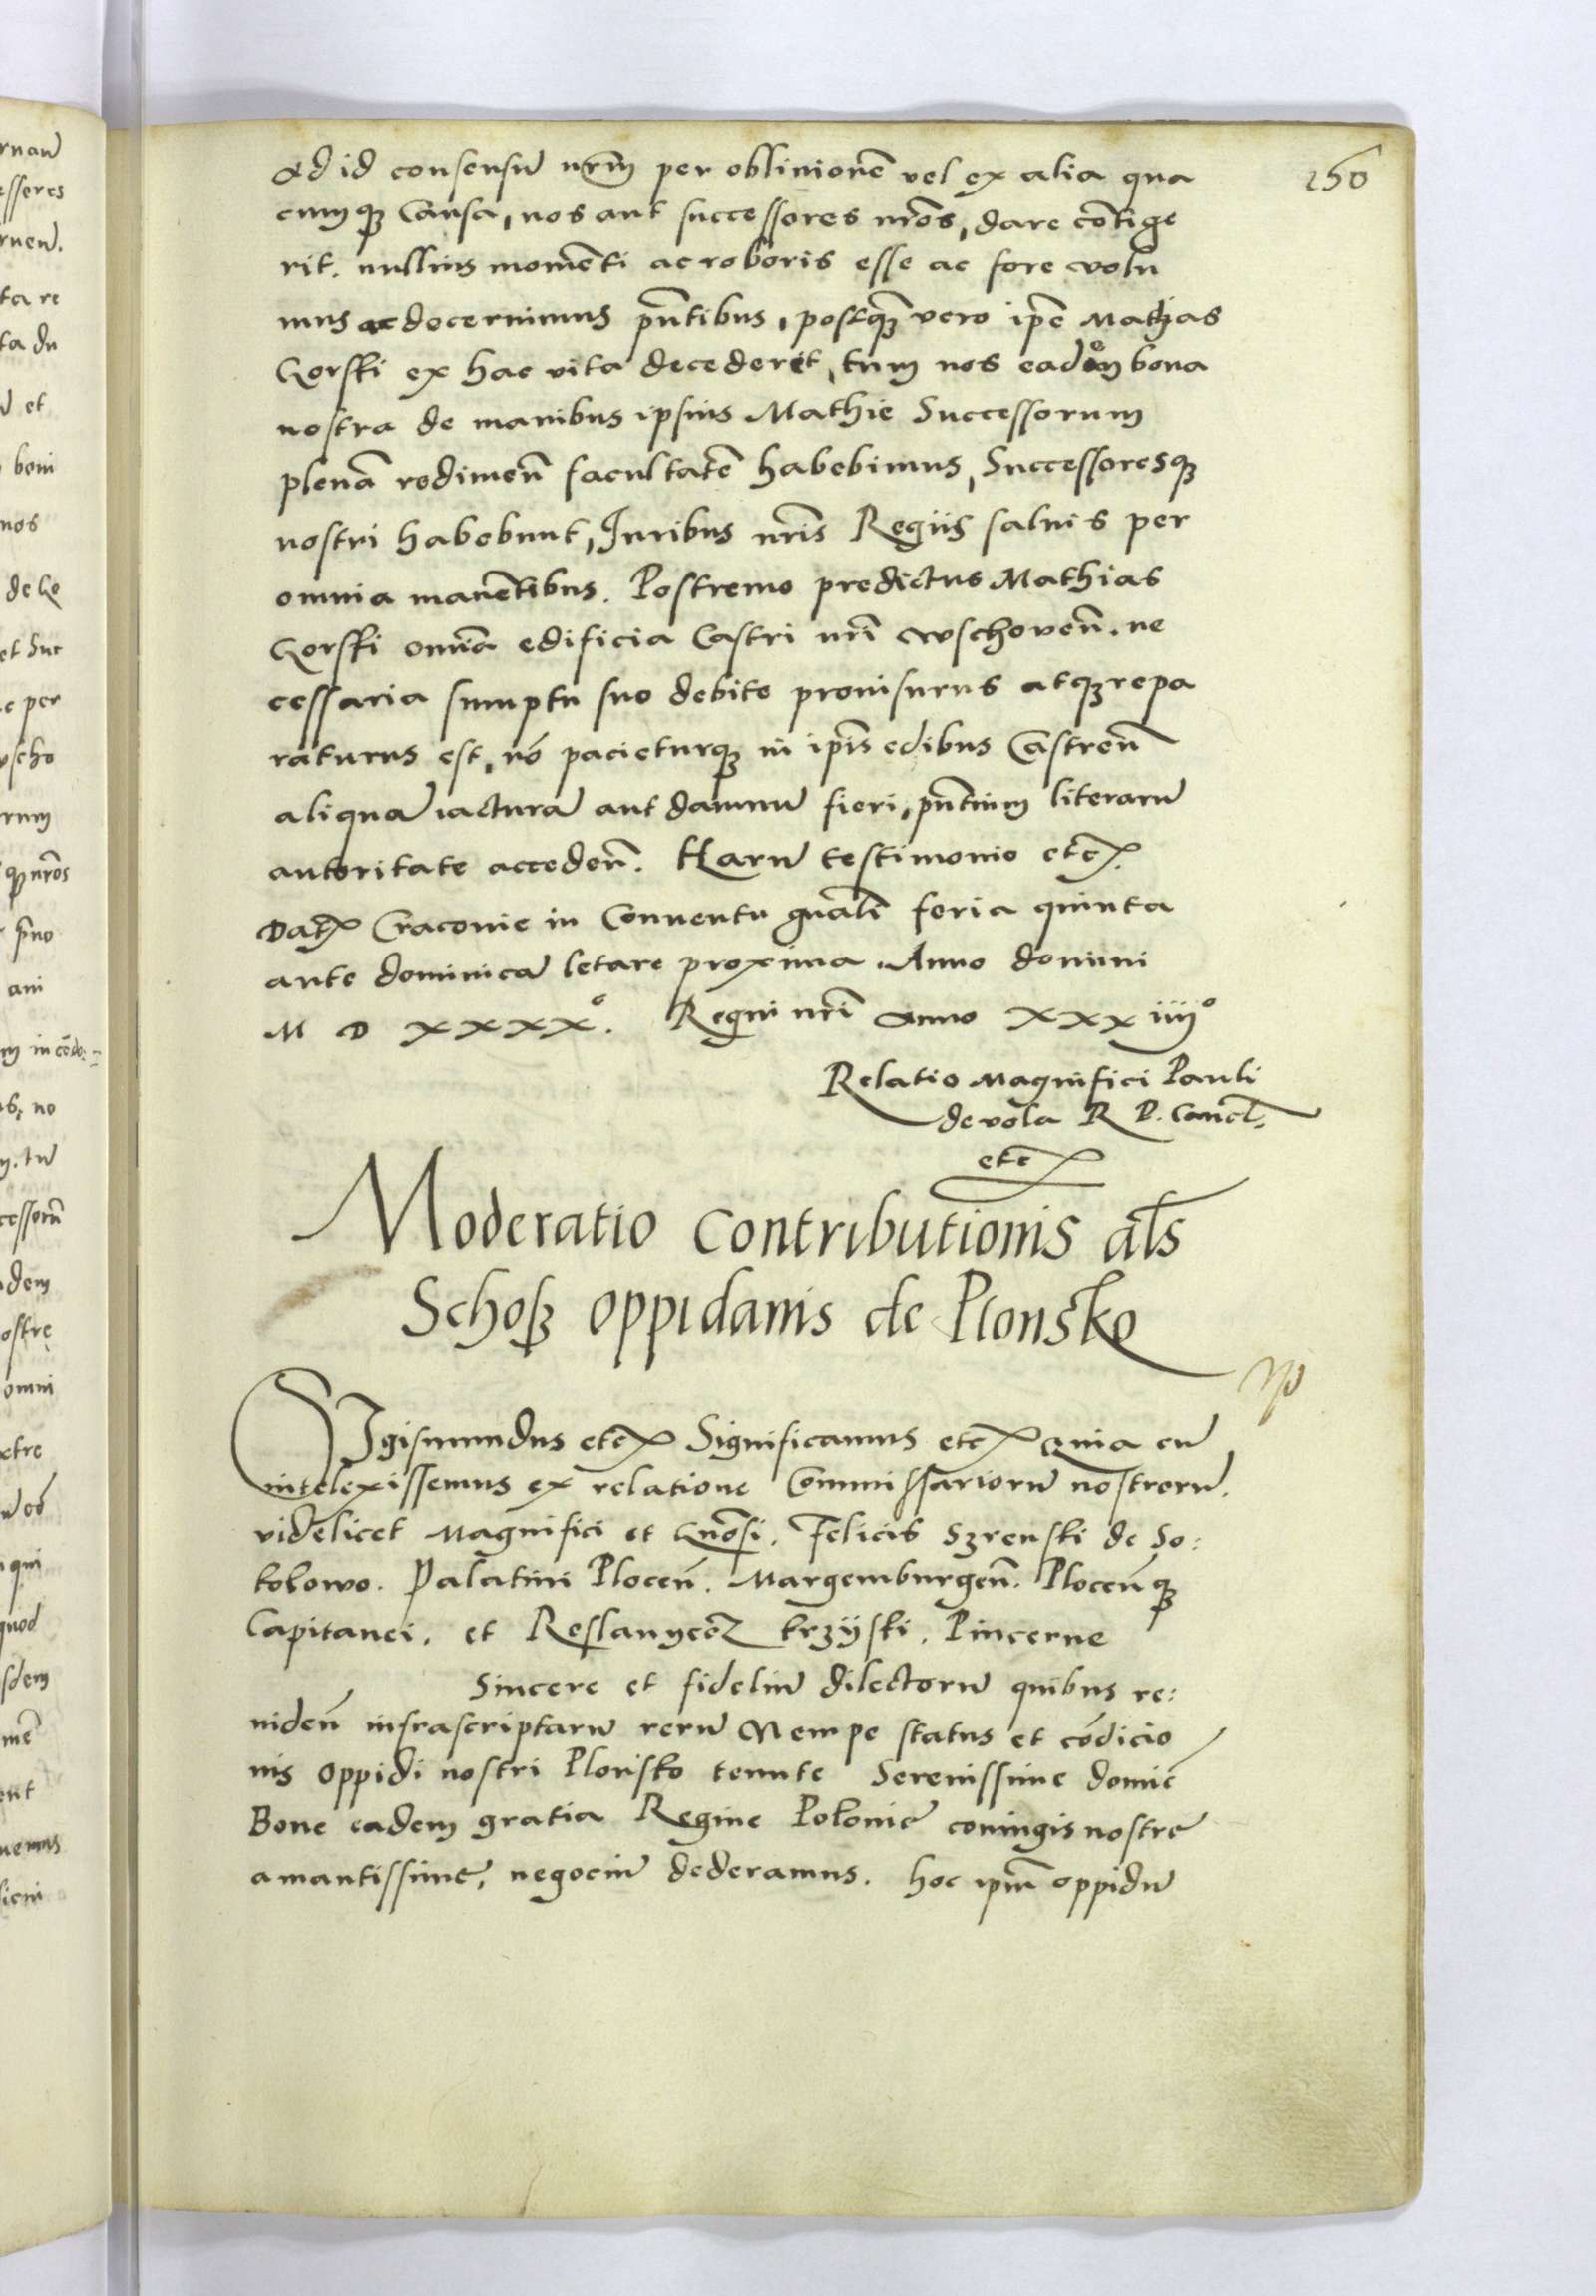 150
Ad id consensũ nrm̃ per obliuionẽ vel ex alia qua
cumqꝫ Causa, nos aut successores nrõs, dare cõtige
rit. nullius momẽti ac roboris esse ac fore volu
mus ac decernimus pñtibus, postqꝫ vero ipẽ Mathias
Gorski ex hac vita decederet, tum nos eadem bona
nostra de manibus ipsius Mathie Successorum
plenã redimeñ facultatẽ habebimus, Successoresqꝫ
nostri habebunt, Iuribus nrĩs Regiis saluis per
omnia manẽtibus. Postremo predictus Mathias
Gorski omĩa edificia Castri nrĩ wschoveñ. ne
cessaria sumptu suo debito prouisurus atqꝫ repa
raturus est, nõ pacieturqꝫ in ipĩs edibus Castreñ
aliquã iacturã aut damnũ fieri, pñtium literarũ
autoritate accedeñ. Harũ testimonio etc̃.
Datꝭ Cracouie in Conuentu gnãli feria quinta
ante dominicã letare proxima Anno domini
M D XXXXº. Regni nrĩ Anno XXXiiiiº
Relatio Magnifici Pauli
de vola R P. Cancl̃.
etc̃
Moderatio Contributionis als̃
Schosz oppidanis de Plonsko
Sigismundus etc̃ Significamus etc̃ Quia cũ
intelexissemus ex relatione Commissariorũ nostrorũ.
videlicet Magnifici et Gnõsi. Felicis Szrenski de So:
kolowo. Palatini Ploceñ. Margemburgeñ. Ploceñqꝫ
Capitanei. et Reslanycẽ krzÿski. Pincerne
Sincere et fideliũ dilectorũ quibus re:
uideñ infrascriptarũ rerũ Nempe status et cõdicio
nis Oppidi nostri Plonsko tenute Serenissime domiẽ
Bone eadem gratia Regine Polonie coniugis nostre
amantissime, negociũ dederamus. hoc ipm̃ oppidũ